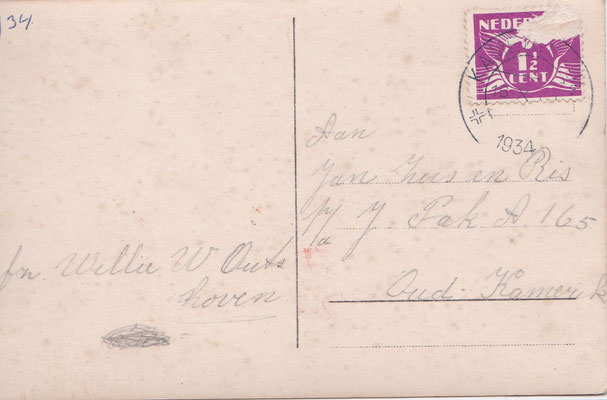 34
NEDER
1½
CENT
1934
Aan
Jan Huis en Ris
p/a J. Pak A. 165
Oud-Kamerik
fn. Willie W Outs
hoven